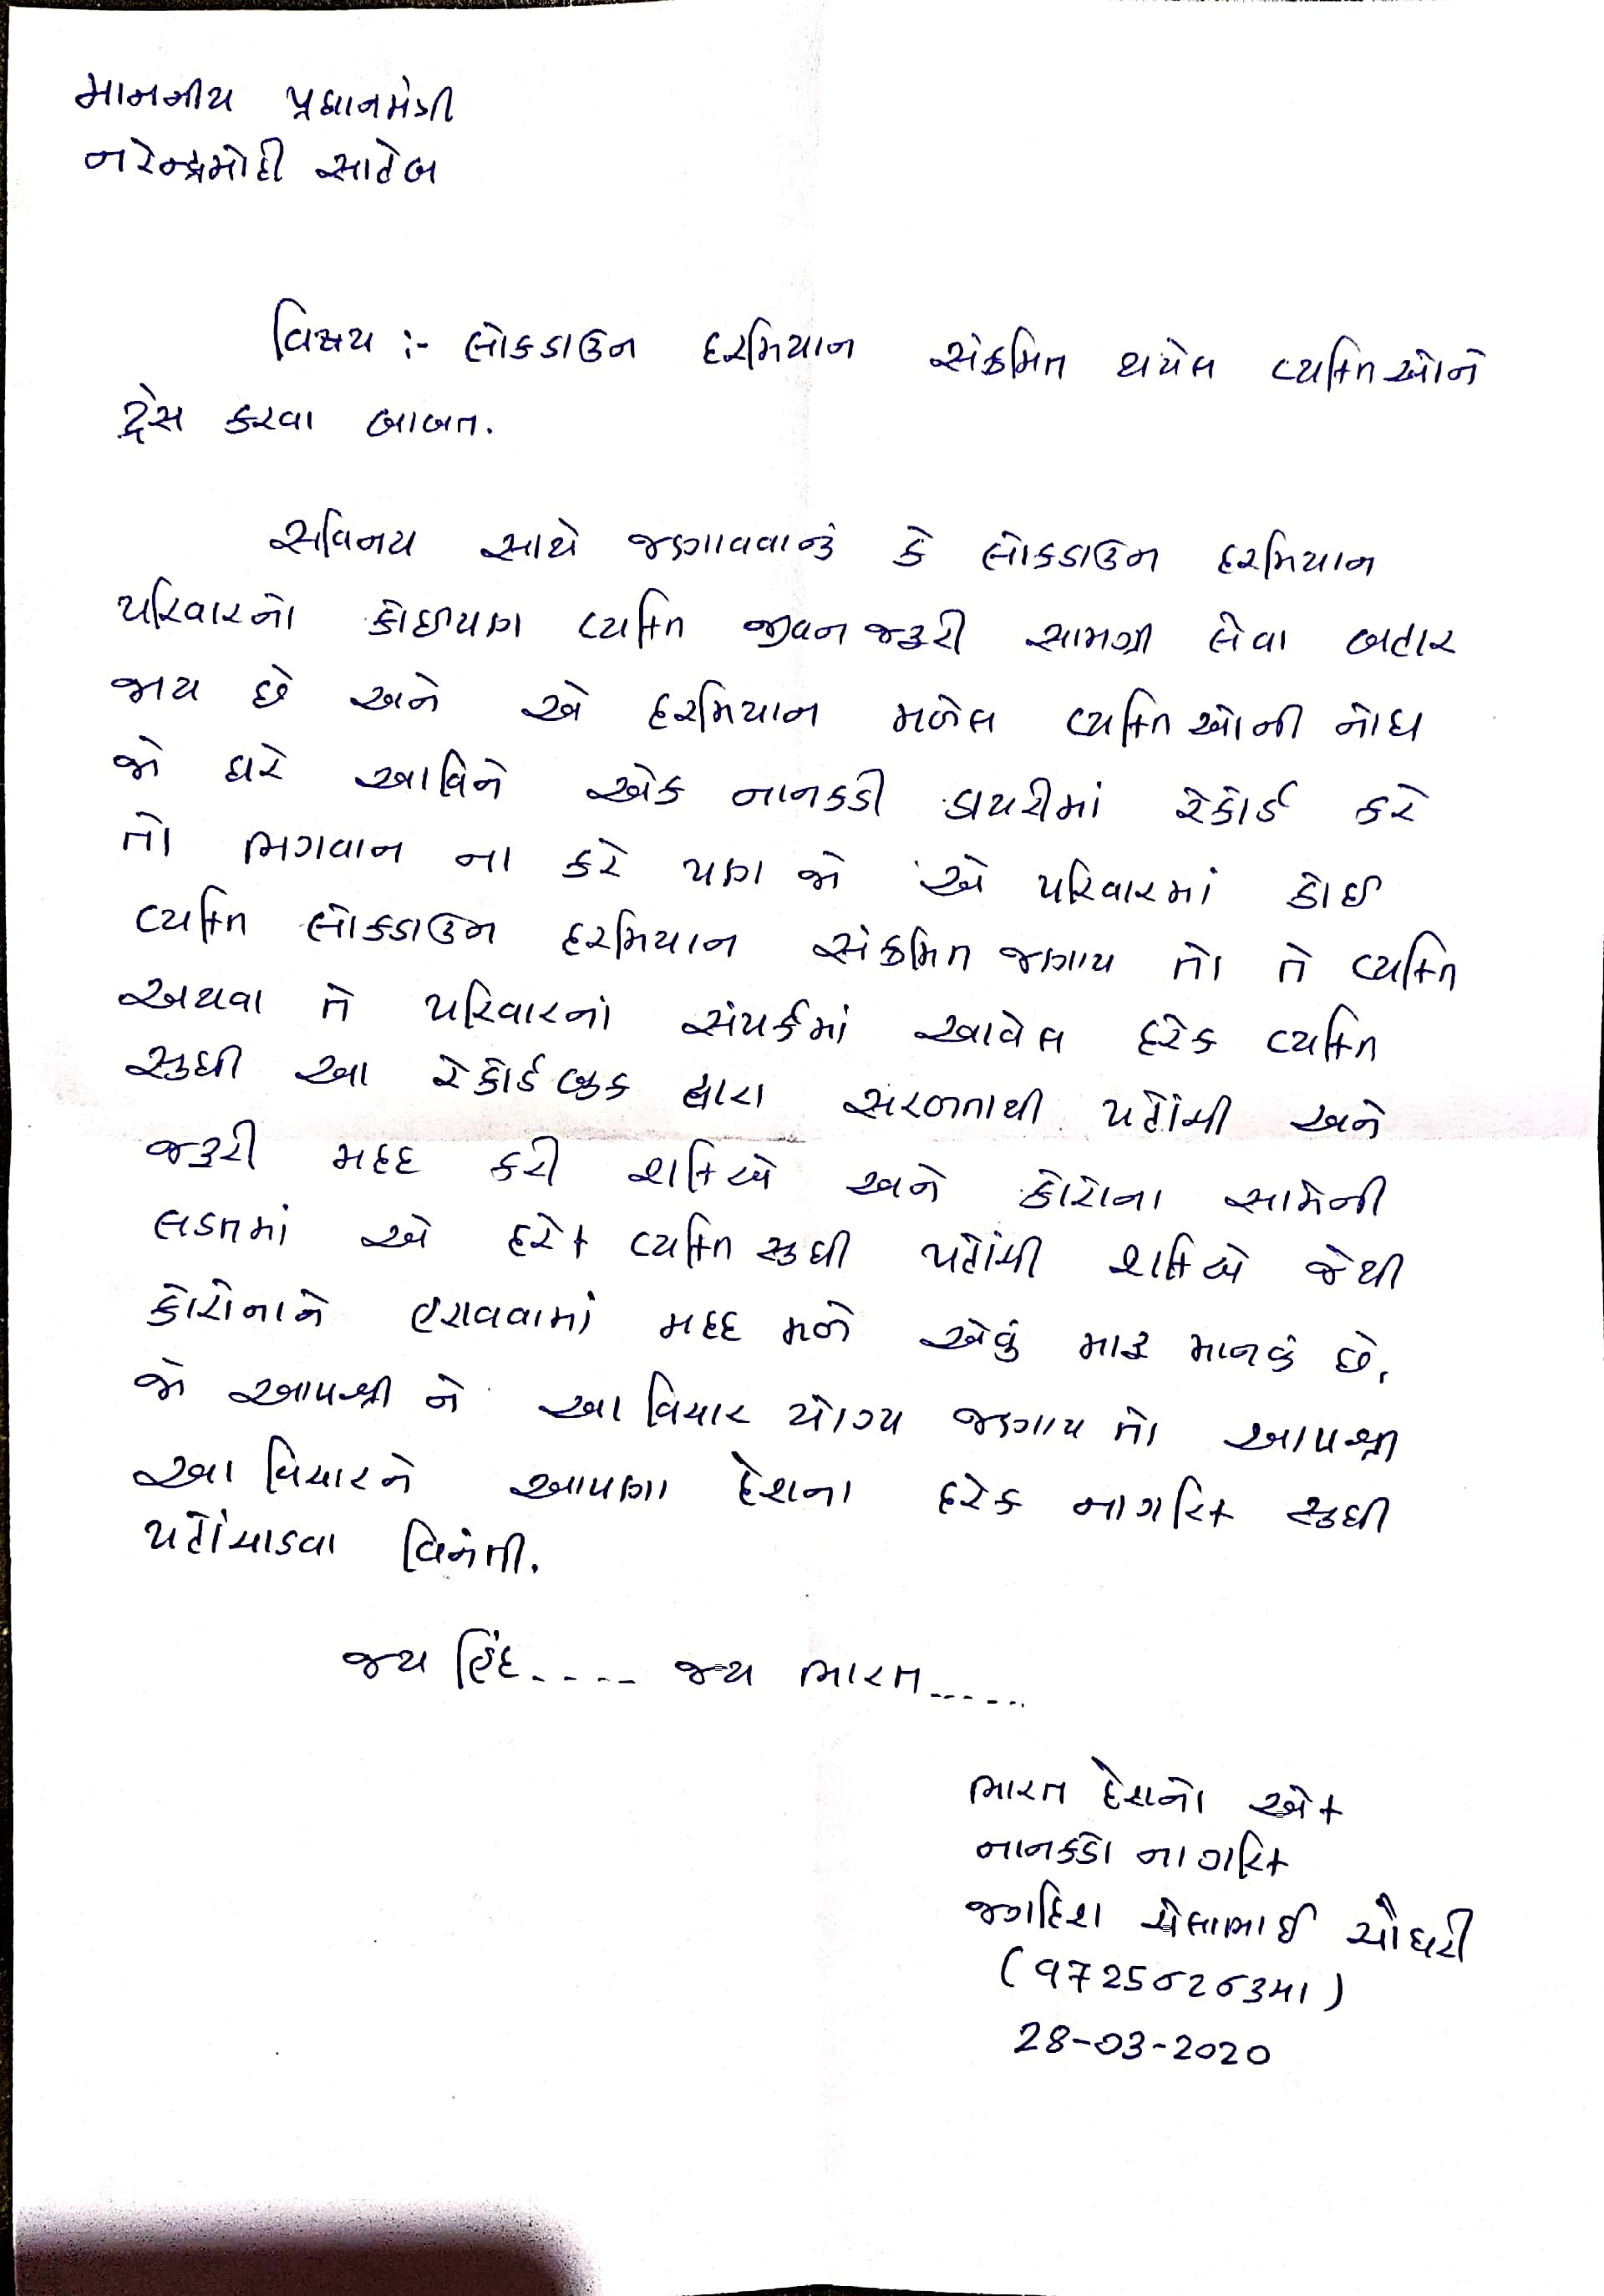 માનનીય પ્રધાનમંત્રી
નરેન્દ્રમોદી સાહેબ
વિષય :- લોકડાઉન દરમિયાન સંક્રમિત થયેલ વ્યક્તિઓને
ટ્રેસ કરવા બાબત.
સવિનય સાથે જણાવવાનું કે લોકડાઉન દરમિયાન
પરિવારનો કોઈપણ વ્યક્તિ જીવનજરૂરી સામગ્રી લેવા બહાર
જાય છે અને એ દરમિયાન મળેલ વ્યક્તિઓની નોધ
જો ઘરે આવિને એક નાનકડી ડાયરીમાં રેકોર્ડ કરે
તો ભગવાન ના કરે પણ જો એ પરિવારમાં કોઈ
વ્યક્તિ લોકડાઉન દરમિયાન સંક્રમિત જણાય તો તે વ્યક્તિ
અથવા તે પરિવારનાં સંપર્કમાં આવેલ દરેક વ્યક્તિ
સુધી આ રેકોર્ડબુક દ્વારા સરળતાથી પહોંચી અને
જરૂરી મદદ કરી શકિએ અને કોરોના સામેની
લડતમાં એ દરેક વ્યક્તિ સુધી પહોંચી શકિએ જેથી
કોરોનાને હરાવવામાં મદદ મળે એવું મારૂ માનવું છે.
જો આપશ્રી ને આ વિચાર યોગ્ય જણાય તો આપશ્રી
આ વિચારને આપણા દેશના દરેક નાગરિક સુધી
પહોંચાડવા વિનંતી.
જય હિંદ.---- જય ભારત.-----
ભારત દેશનો એક
નાનકડો નાગરિક
જગદિશ ચેલાભાઈ ચૌધરી
28-03-2020